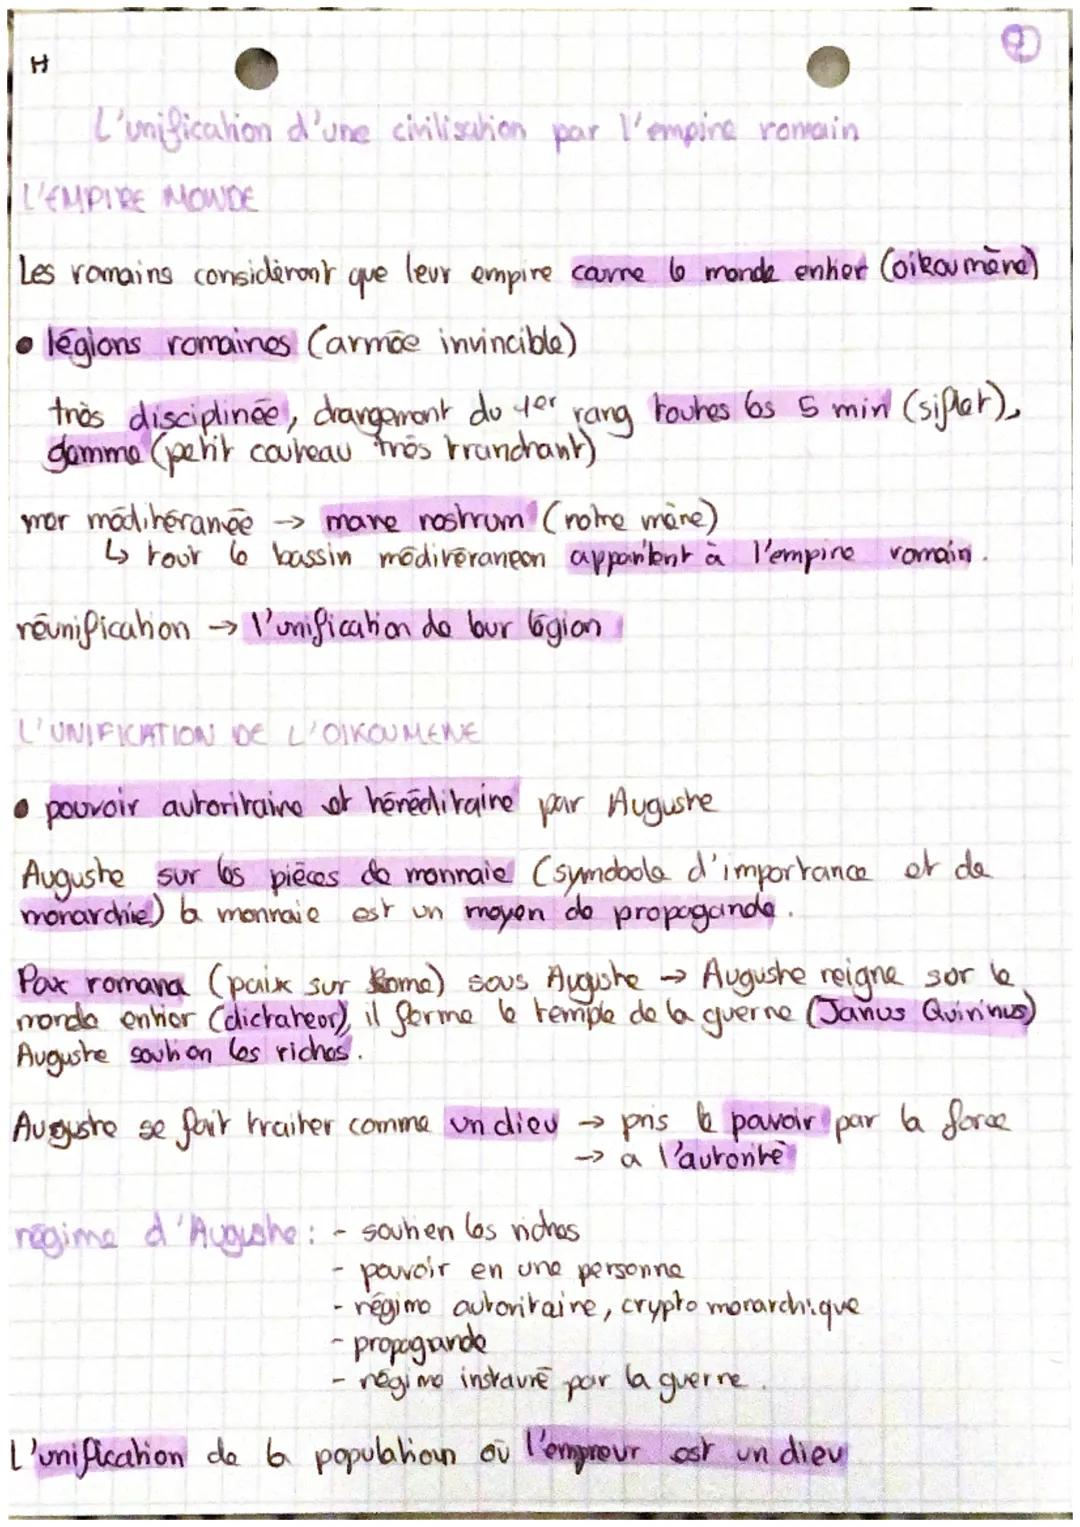 H
L'unification d'une civilisation par l'empire romain
L'EMPIRE MONDE
Les romains considèront que leur empire come le monde entier (oikoumène)
• légions romaines (armée invincible)
très disciplinée, changement du 1er rang toutes les 5 min (siflet),
gamme (petit couteau très tranchant)
mer méditéranée → mare nostrum (notre mère)
↳ tout le bassin méditéranéen appartient à l'empire romain.
réunification → l'unification de leur légion
L'UNIFICATION DE L'OIKOUMENE
• pouvoir autoritaire et héréditaire par Auguste
Auguste sur les pièces de monnaie (symboole d'importance et de
monarchie) la monnaie est un moyen de propagande.
Pax romana (paix sur Rome) sous Auguste → Auguste reigne sur le
monde entier (dictateor), il ferme le temple de la guerre (Janus Quirinus)
Auguste soutien les riches.
Auguste se fait traiter comme un dieu → pris le pouvoir par la force
→ a l'autorité
régime d'Auguste : - soutien les riches
- pouvoir en une personne
- régime autoritaire, crypto monarchique
- propagande
- régime instauré par la guerre.
L'unification de la population où l'empreur est un dieu